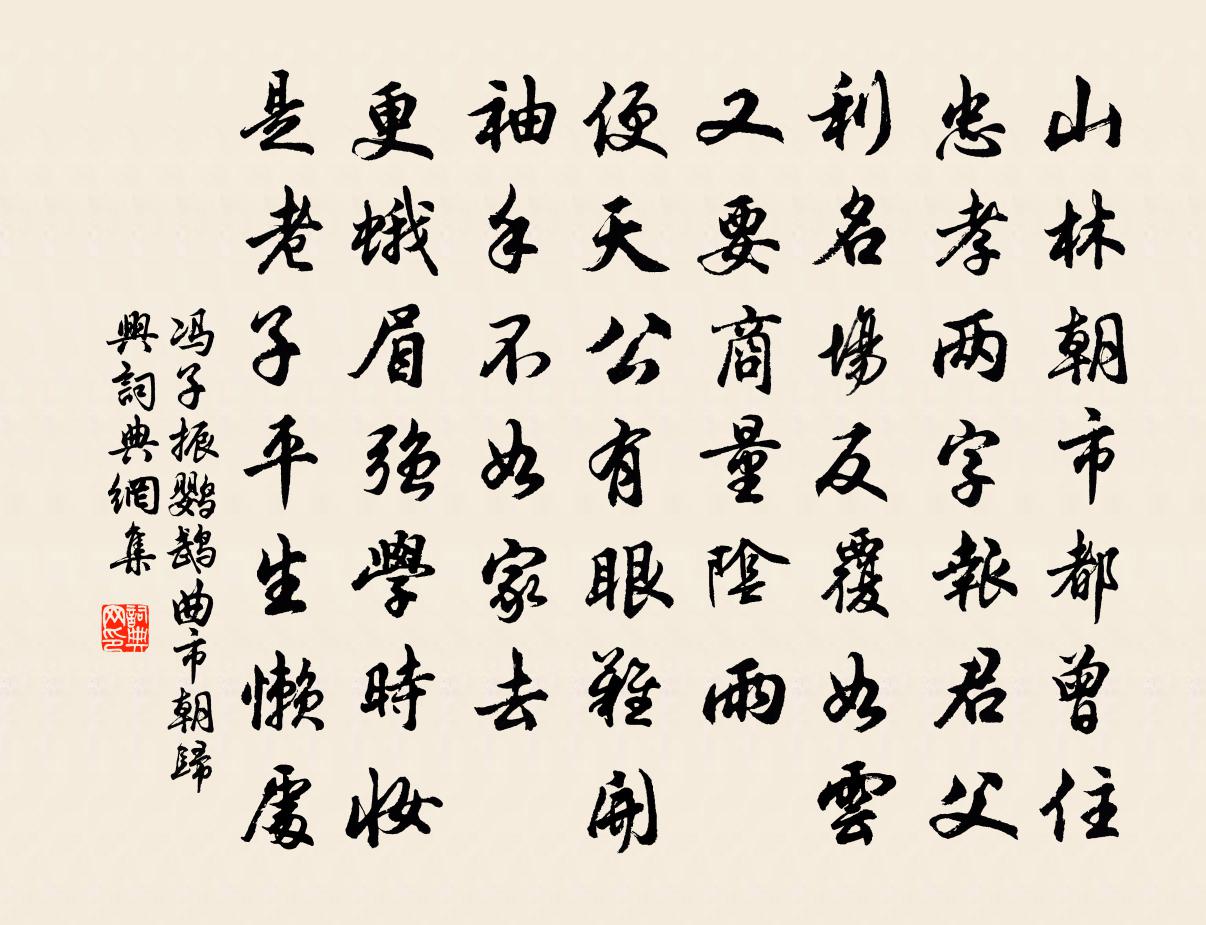 山林朝市都曾住
忠孝兩字報君父
利名場反覆如雲
又要商量陰雨
便天公有眼難開
袖手不如家去
更蛾眉強學時妝
是老子平生懶處
冯子振鹦鹉曲市朝歸
興詞典網集
詞典网印